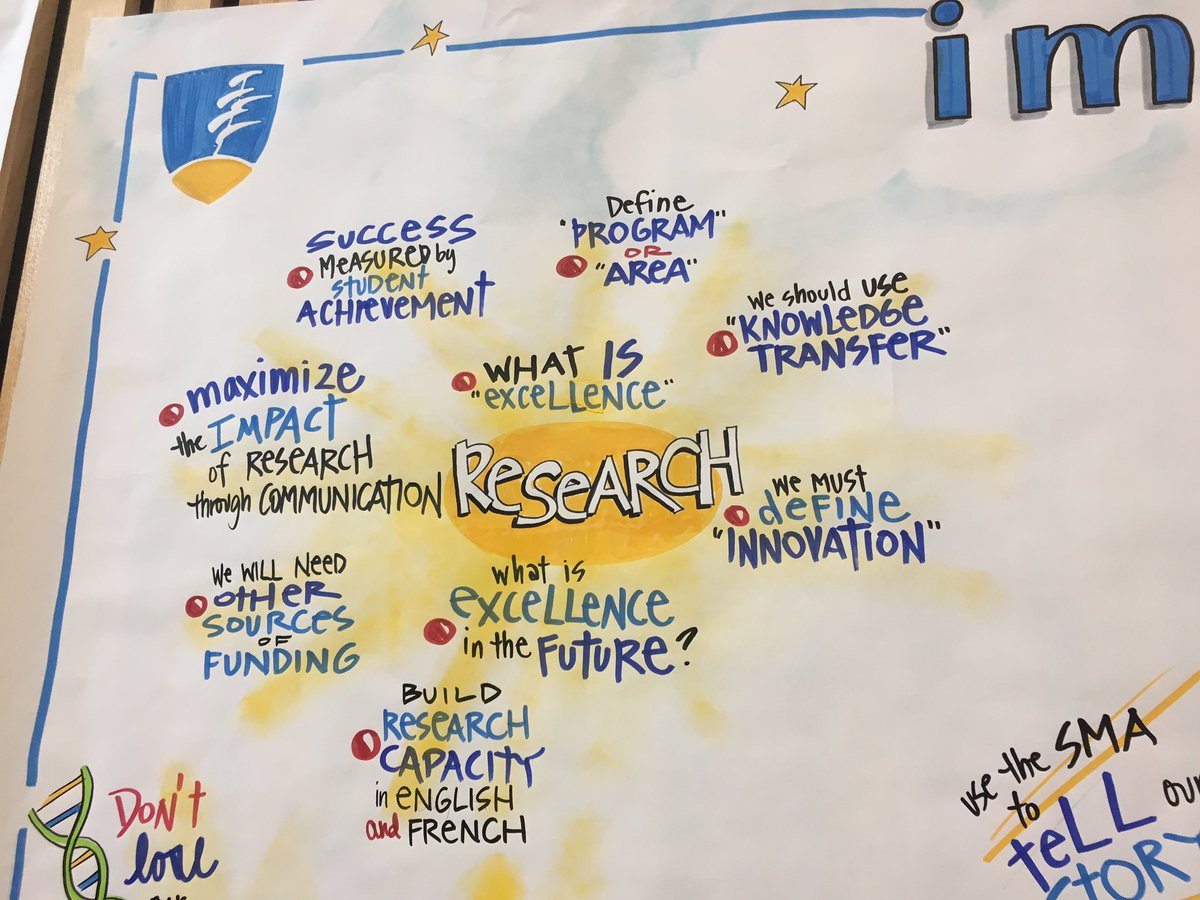 im
SUCCESS
MEASURED by
STUDENT
ACHIEVEMENT
Define
"PROGRAM"
OR
"AREA"
we should use
"KNOWLEDGE
TRANSFER"
maximize
the IMPACT
of RESEARCH
through COMMUNICATION
WHAT IS
"excellence"
RESEARCH
we must
define
"INNOVATION"
We WILL NEED
OTHER
SOURCES
OF
FUNDING
what is
excellence
in the FUTURE?
BUILD
RESEARCH
CAPACITY
in ENGLISH
and FRENCH
DON'T
use the SMA
to TELL our
STORY